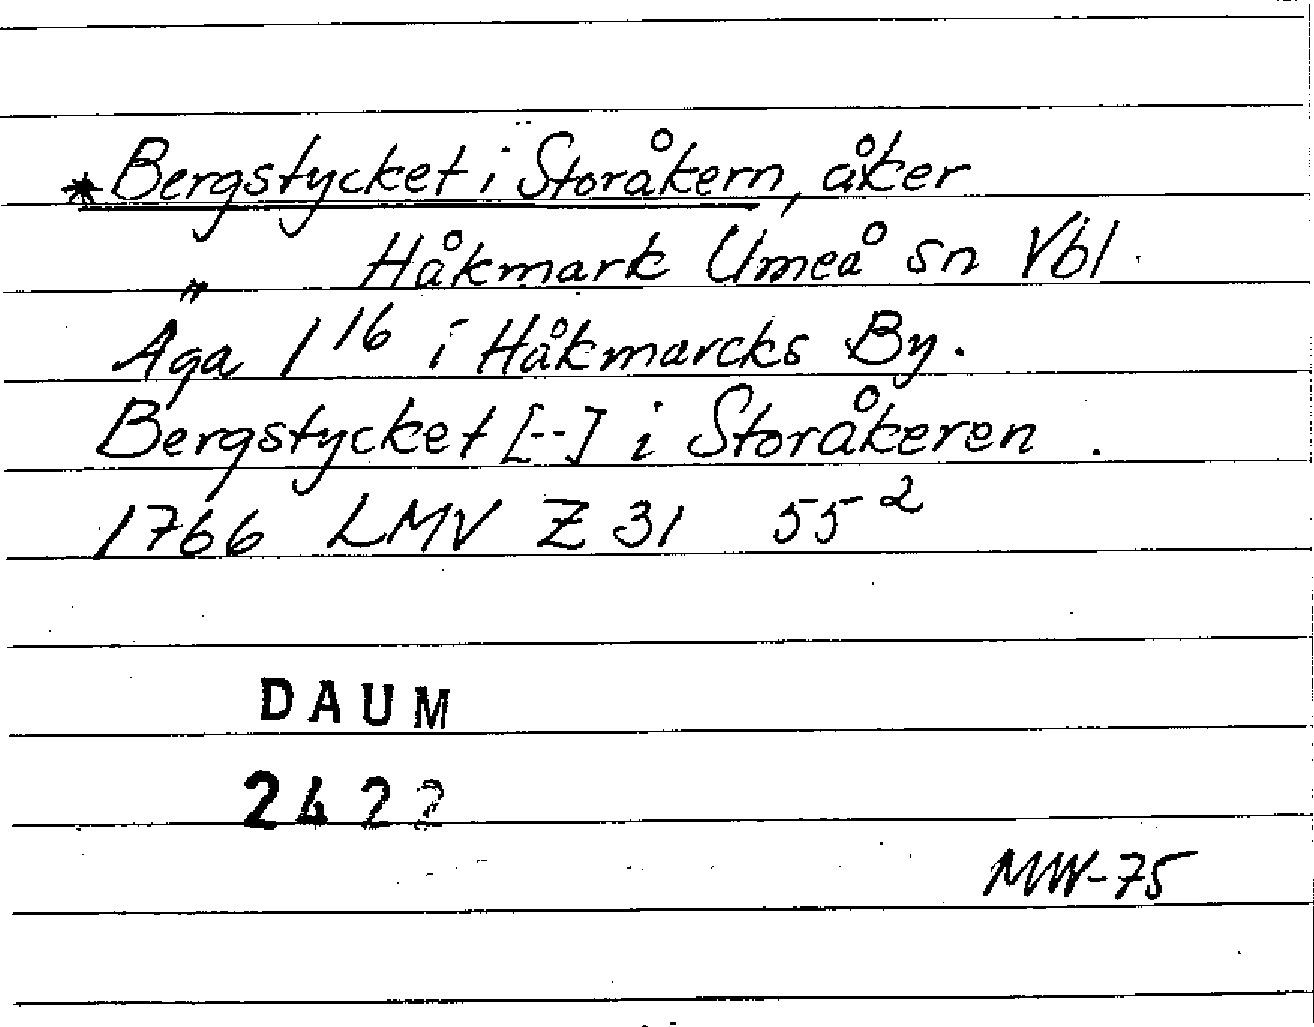 * Bergstycket i Storåkern, åker
" Håkmark Umeå sn Vbl.
Äga 1 16 i Håkmarcks By.
Bergstycket [--] i Storåkeren.
1766 LMV Z 31 55 2
DAUM
2422
MW-75